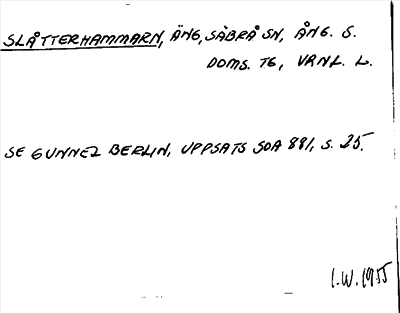 SLÅTTERHAMMARN, ÄNG, SÄBRÅ SN, ÅNG. S.
DOMS. TG, VRNL. L.
SE GUNNEL BERLIN, UPPSATS SOA 881, S. 25.
I.W. 1955